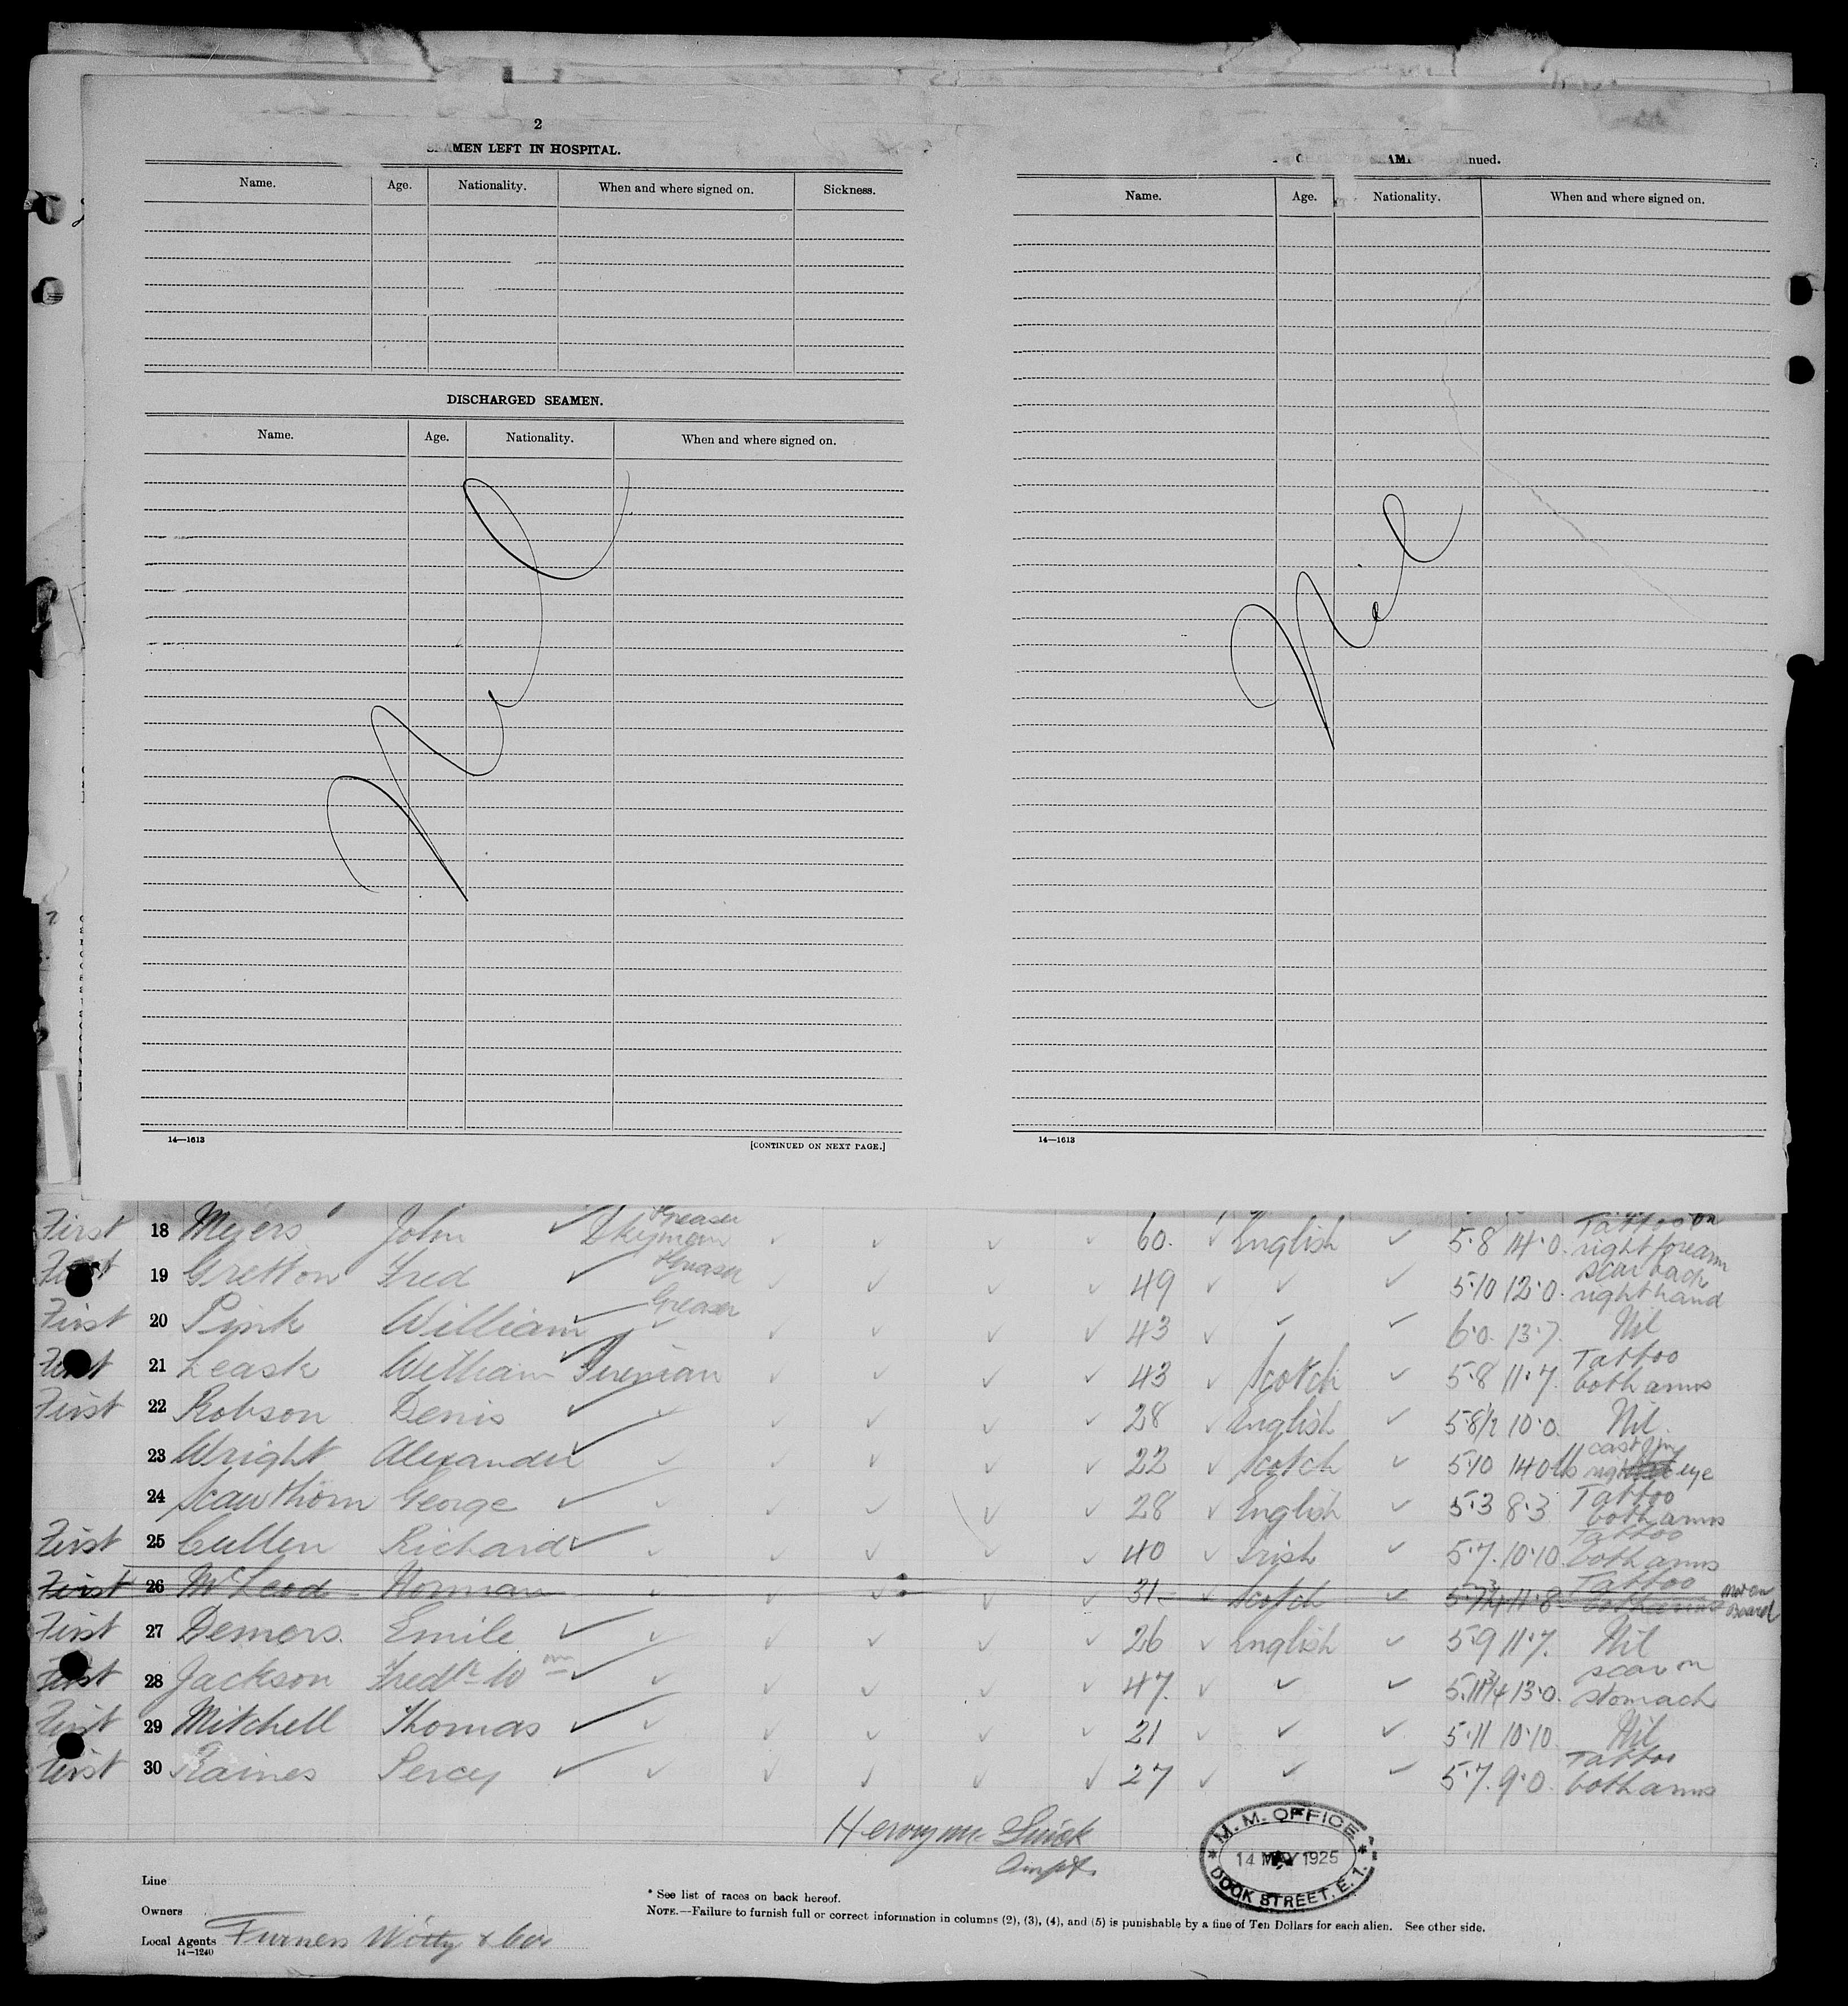 2
MEN LEFT IN HOSPITAL.
Name. Age. Nationality. When and where signed on. Sickness.
DISCHARGED SEAMEN.
Name. Age. Nationality. When and where signed on.
Nil
14—1613 [CONTINUED ON NEXT PAGE.]
Name. Age. Nationality. When and where signed on.
Nil
14—1613
First 18 Meyers John ✓ Dkyman Greaser 60. English 5.8 14.0. Tattoo on right forearm
First 19 Gretton Fred ✓ Greaser 49 ✓ 5.10 12.0. scar back right hand
First 20 Pink William ✓ Greaser 43 ✓ 6.0. 13.7. Nil
First 21 Leask William ✓ Fireman 43 Scotch 5.8 11.7. Tattoo both arms
First 22 Robson Denis ✓ 28 English 5.8½ 10.0. Nil.
23 Wright Alexander ✓ 22 Scotch 5.10 140 lb cast in right eye
24 Scawthorn George ✓ 28 English 5.3 8.3 Tattoo both arms
First 25 Cullen Richard ✓ 40 Irish 5.7. 10.10. Tattoo both arms
First 26 McLeod Norman 31 Scotch 5.7¾ 11.8 Tattoo both arms not on Board
First 27 Demers. Emile ✓ 26 English 5.9 11.7. Nil
First 28 Jackson Fredk Wm ✓ 47. ✓ 5.11¾ 13.0. scar on stomach
First 29 Mitchell Thomas ✓ 21 ✓ 5.11 10.10. Nil
First 30 Raines Percy ✓ 27 ✓ 5.7. 9.0. Tattoo both arms
M. M. OFFICE
14 MAY 1925
DOCK STREET, E. 1.
Line
Owners
Local Agents Furness Withy & Co.
14—1240
* See list of races on back hereof.
NOTE.—Failure to furnish full or correct information in columns (2), (3), (4), and (5) is punishable by a fine of Ten Dollars for each alien. See other side.